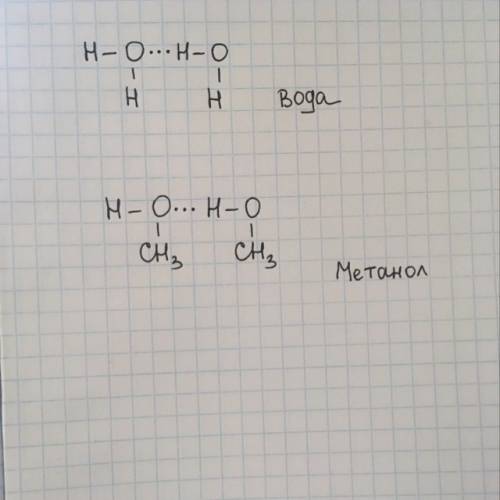 H – O ··· H – O
H H Вода
H – O ··· H – O
CH₃ CH₃
Метанол